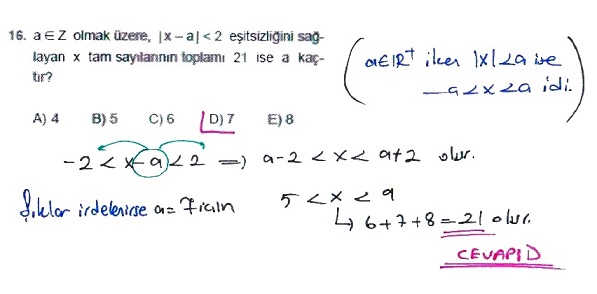 16. a ∈ Z olmak üzere, |x – a| < 2 eşitsizliğini sağ-
layan x tam sayılarının toplamı 21 ise a kaç-
tır?
(a∈IR⁺ iken |x|<a ise
–a<x<a idi.)
A) 4 B) 5 C) 6 D) 7 E) 8
-2 < x-a < 2 ⇒ a-2 < x < a+2 olur.
Şıklar irdelenirse a=7 için 5 < x < 9
↳ 6+7+8=21 olur.
CEVAP D